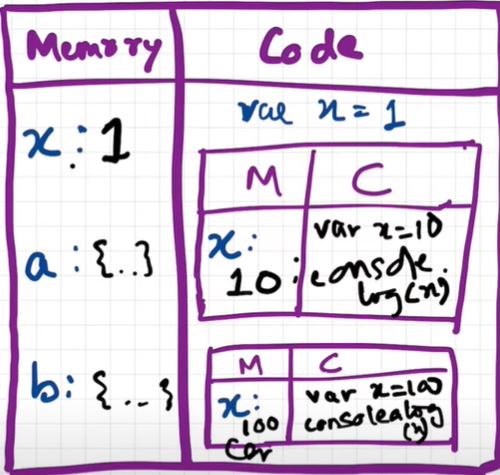 Memory Code
x: 1
var x = 1
M C
x:
10
var x=10
console.
log(x)
a: {..}
b: {...}
M C
x:
100
var x=100
consolealog
(x)